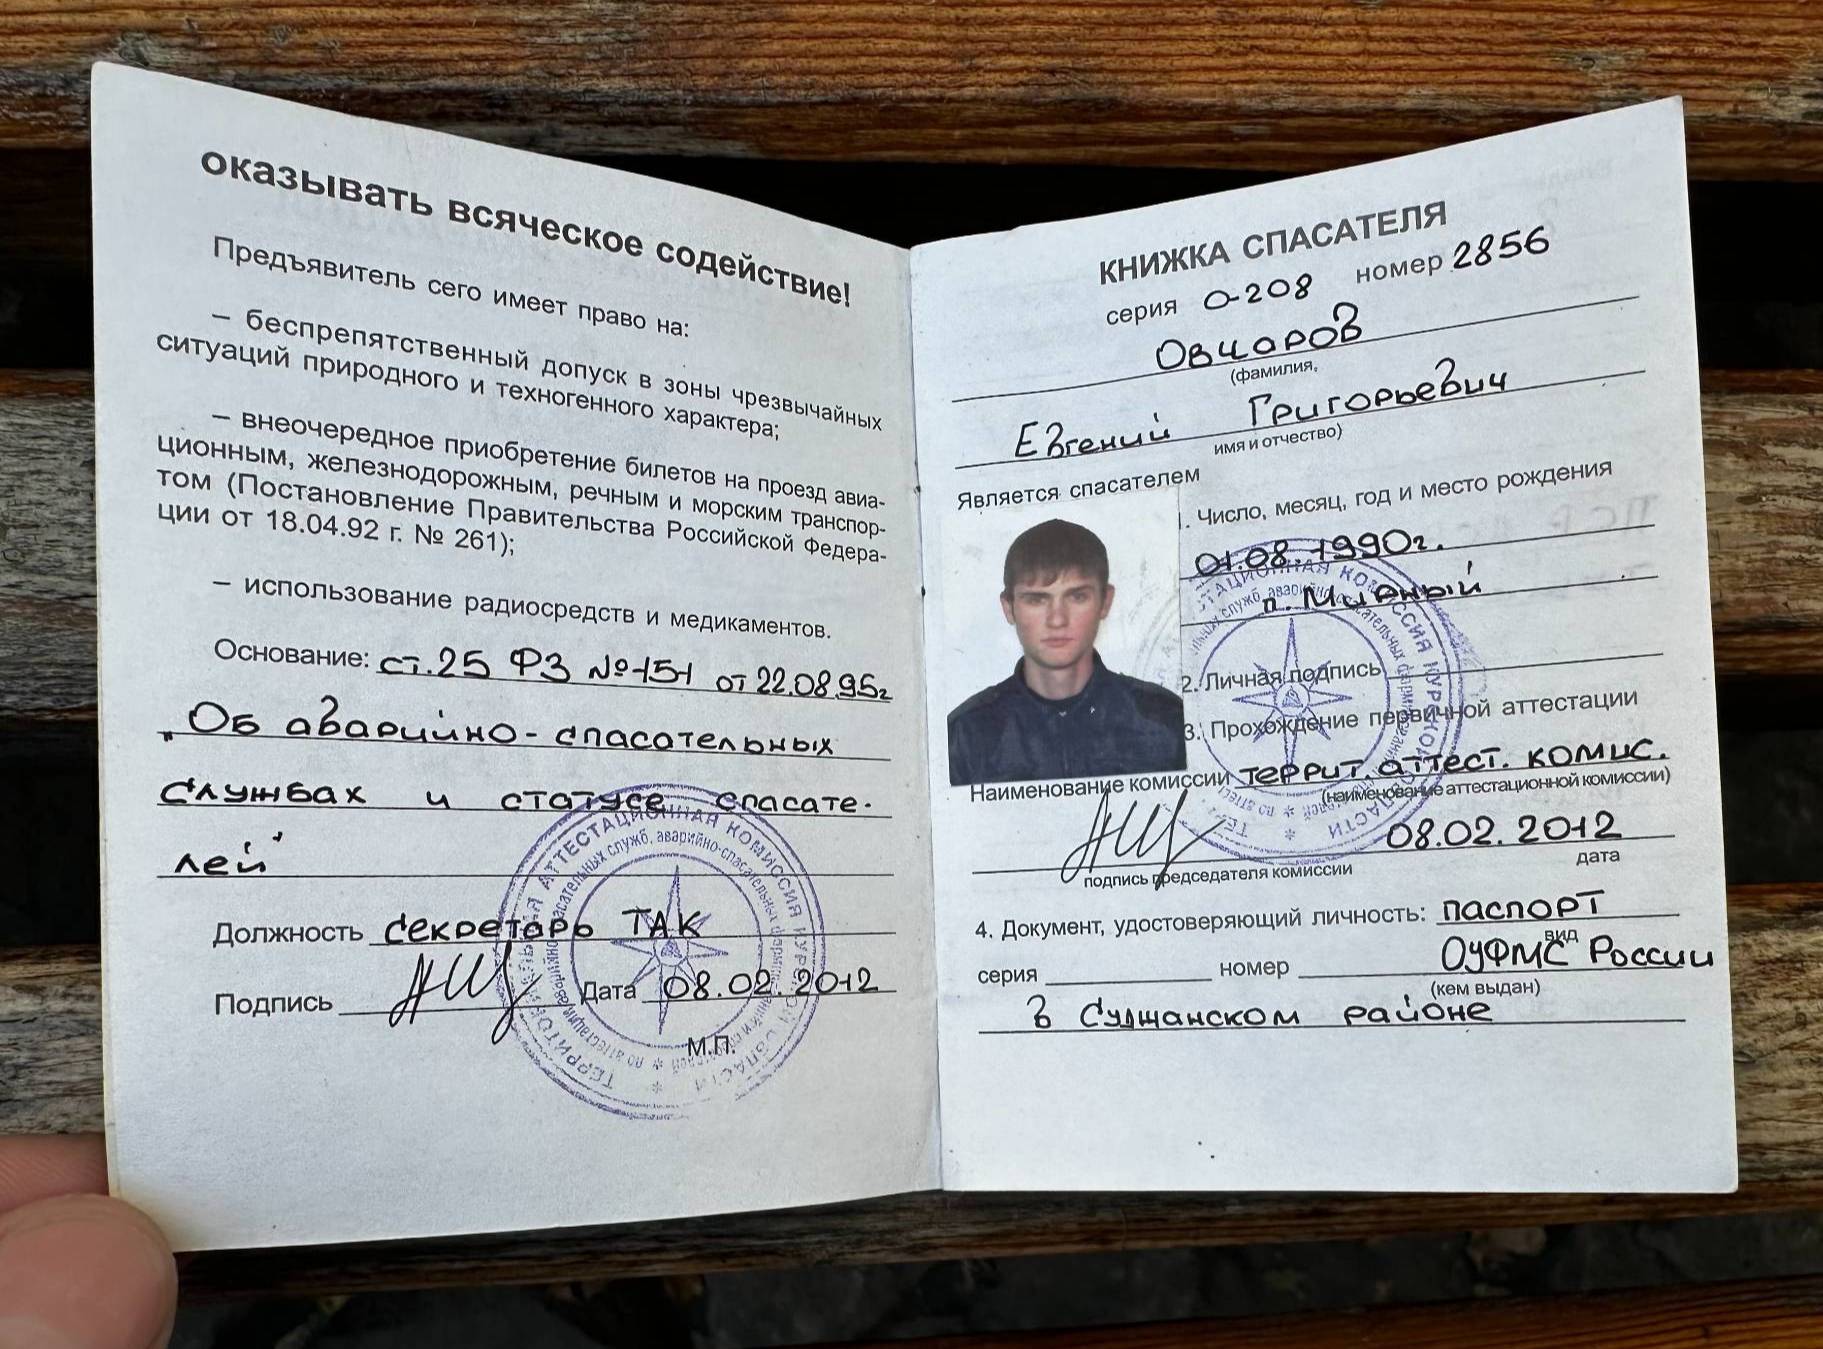 оказывать всяческое содействие!
Предъявитель сего имеет право на:
– беспрепятственный допуск в зоны чрезвычайных
ситуаций природного и техногенного характера;
– внеочередное приобретение билетов на проезд авиа-
ционным, железнодорожным, речным и морским транспор-
том (Постановление Правительства Российской Федера-
ции от 18.04.92 г. № 261);
– использование радиосредств и медикаментов.
Основание: ст.25 ФЗ №151 от 22.08.95г
„Об аварийно-спасательных
службах и статусе спасате-
лей"
Должность секретарь ТАК
Подпись Дата 08.02.2012
М.П.
КНИЖКА СПАСАТЕЛЯ
серия О-208 номер 2856
Овчаров
(фамилия,
Евгений Григорьевич
имя и отчество)
Является спасателем
1. Число, месяц, год и место рождения
01.08.1990г.
п. Мирный
2. Личная подпись
3. Прохождение первичной аттестации
Наименование комиссии террит. аттест. комис.
(наименование аттестационной комиссии)
08.02.2012
подпись председателя комиссии дата
4. Документ, удостоверяющий личность: паспорт
вид
серия номер ОУФМС России
(кем выдан)
в Суджанском районе